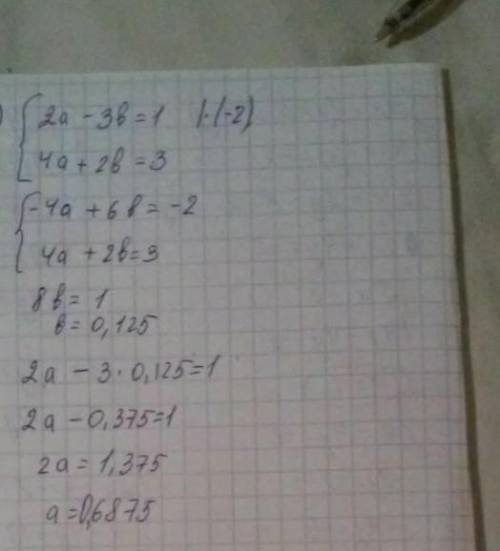 ) { 2a - 3b = 1 |·(-2)
4a + 2b = 3
{ -4a + 6b = -2
4a + 2b = 3
8b = 1
b = 0,125
2a - 3 · 0,125 = 1
2a - 0,375 = 1
2a = 1,375
a = 0,6875